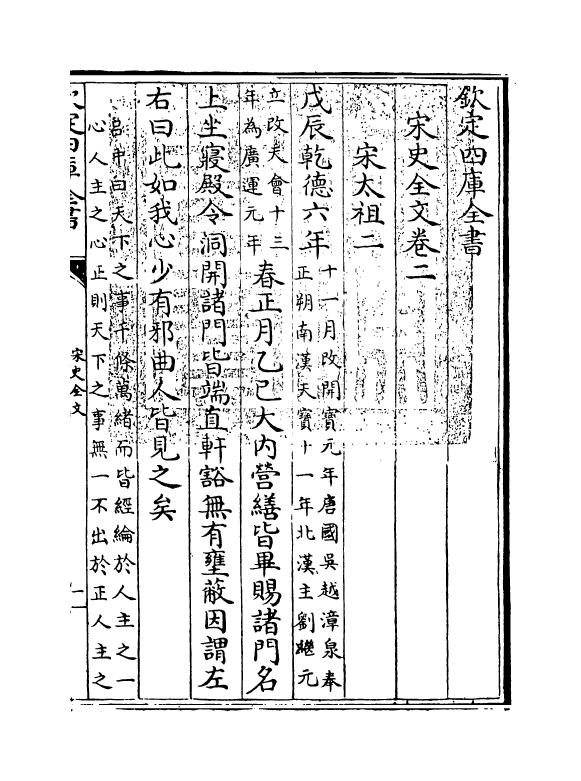 欽定四庫全書
宋史全文卷二
宋太祖二
戊辰乾德六年
十一月改開寶元年唐國吳越漳泉奉
正朔南漢天寶十一年北漢主劉繼元
立改天會十三
年為廣運元年
春正月乙巳大內營繕皆畢賜諸門名
上坐寢殿令洞開諸門皆端直軒豁無有壅蔽因謂左
右曰此如我心少有邪曲人皆見之矣
呂中曰天下之事千條萬緒而皆經綸於人主之一
心人主之心正則天下之事無一不出於正人主之
欽定四庫全書
宋史全文
一